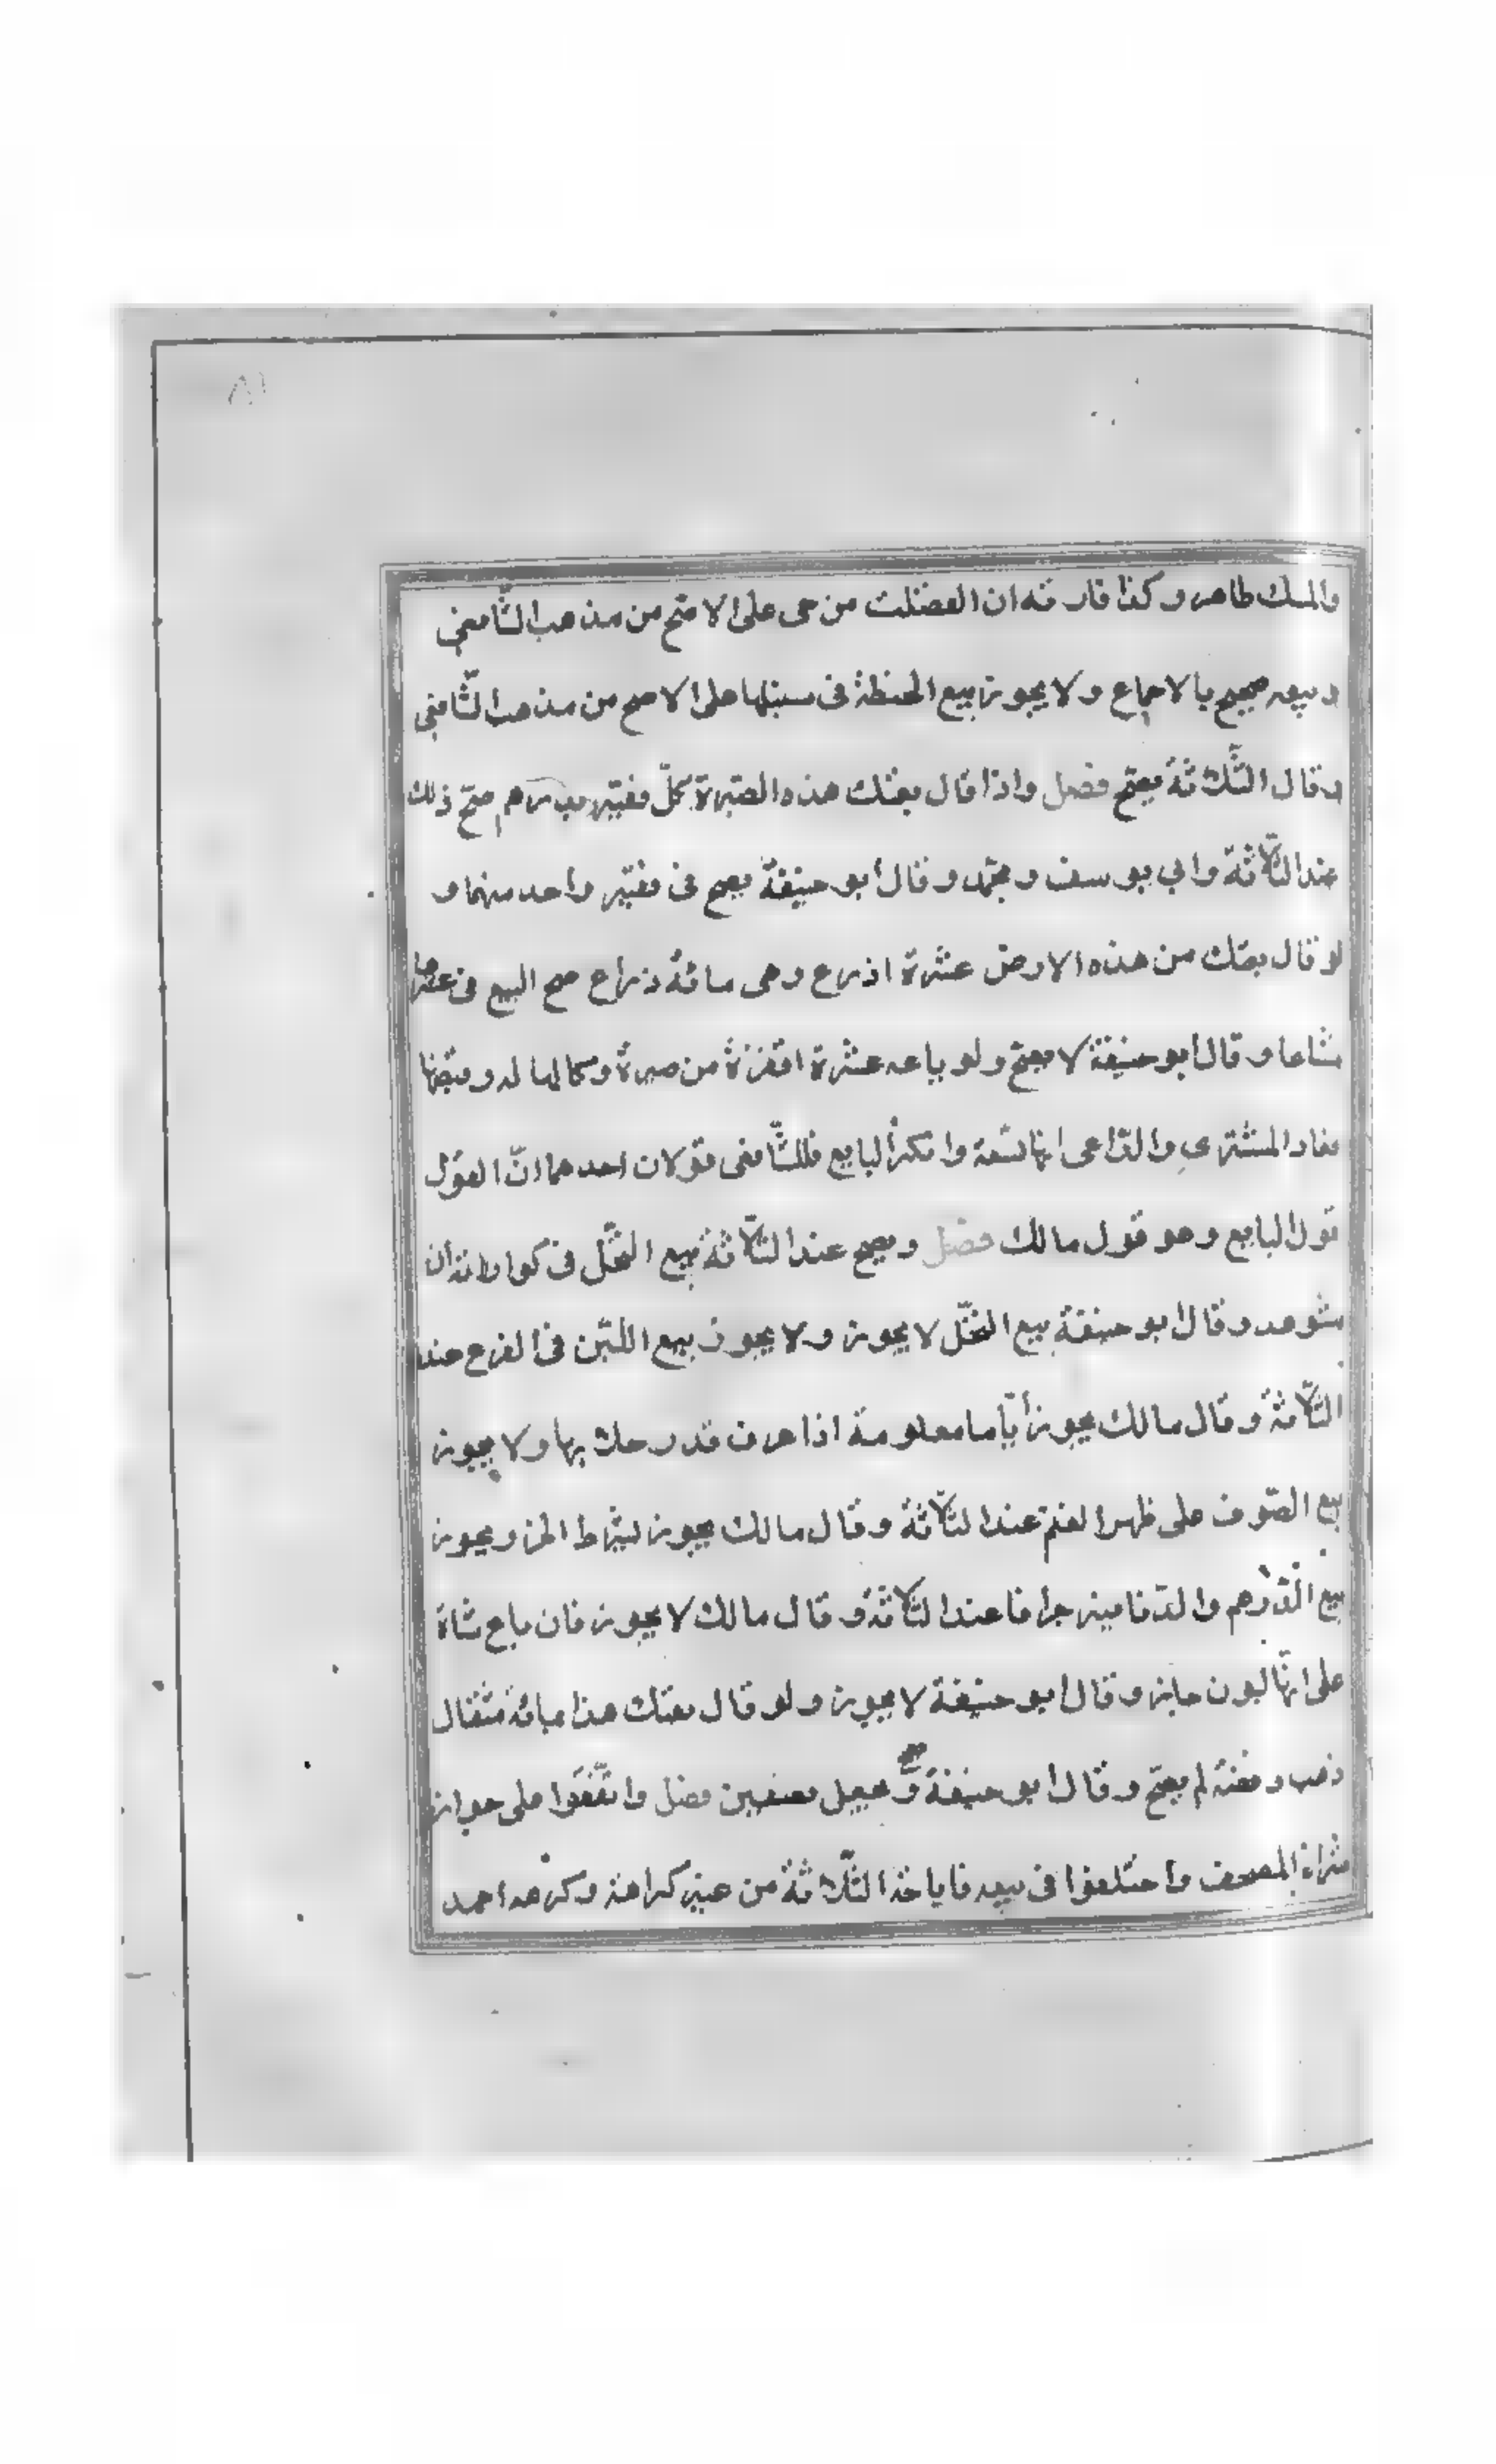 ٨١
والمسك طاهر وكذا فارته ان انفصلت من حى على الاصح من مذهب الشافعى
وبيعه صحيح بالاجماع ولا يجوز بيع الحنطة فى سنبلها على الاصح من مذهب الشافعى
وقال الثلاثة يصح فصل واذا قال بعتك هذه الصبرة كل قفيز بدرهم صح ذلك
عند الثلاثة وابي يوسف ومحمد وقال ابو حنيفة يصح فى قفيز واحد منهما و
لو قال بعتك من هذه الارض عشرة اذرع وهى مائة ذراع صح البيع فى عشرها
مشاعا وقال ابو حنيفة لا يصح ولو باعه عشرة اقفزة من صبرة وكالها له وقبضها
فعاد المشترى والداعى انها تسعة وانكر البايع فللشافعى قولان احدهما ان القول
قول البايع وهو قول مالك فصل ويصح عند الثلاثة بيع النحل فى كواراته ان
شوهد وقال ابو حنيفة بيع النحل لا يجوز ولا يجوز بيع اللبن فى الضرع عند
الثلاثة وقال مالك يجوز أياما معلومة اذا عرف قدر حلابها ولا يجوز
بيع الصوف على ظهر الغنم عند الثلاثة وقال مالك يجوز بشرط الجز ويجوز
بيع الدرهم والدنانير جزافا عند الثلاثة وقال مالك لا يجوز فان باع شاة
على انها لبون جايز وقال ابو حنيفة لا يجوز ولو قال بعتك هذا بمائة مثقال
ذهب وفضة لم يصح وقال ابو حنيفة صح ويجعل نصفين فصل واتفقوا على جواز
شراء المصحف واختلفوا فى بيعه فاباحه الثلاثة من غير كراهة وكرهه احمد